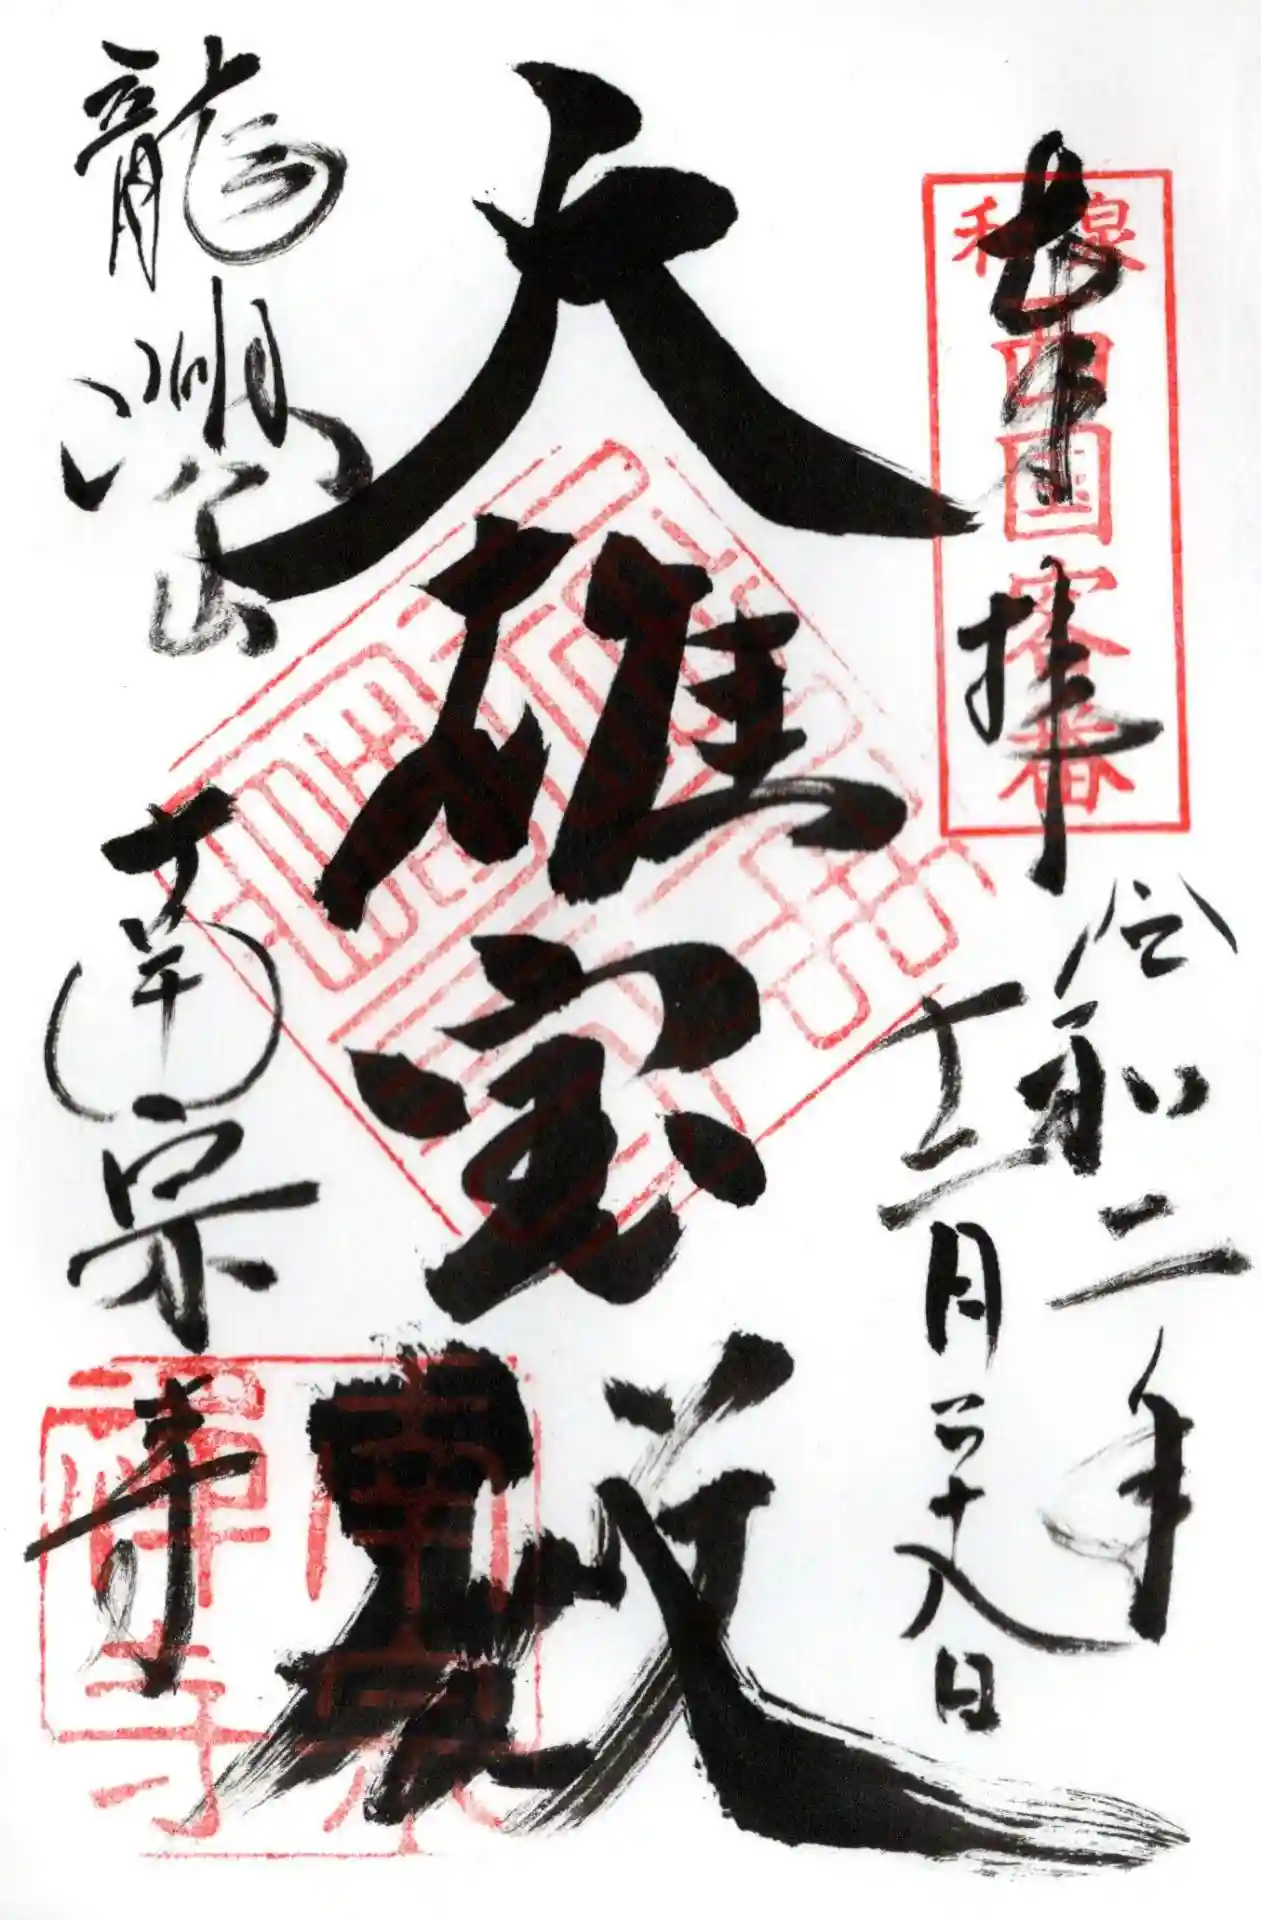 奉拝
令和二年
十二月二十八日
和泉西国客番
大雄宝殿
龍淵山
南宗寺
南宗禅寺